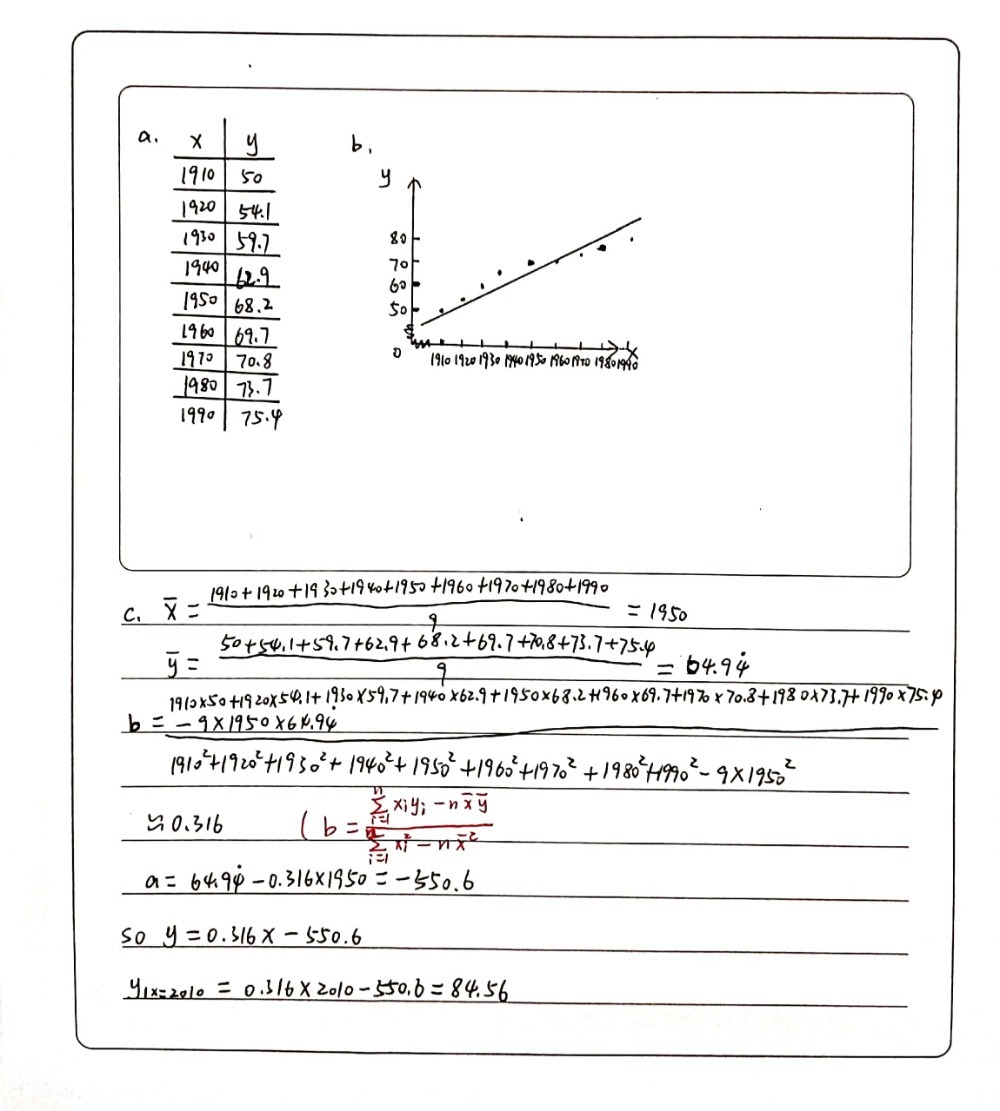 a.
x y
1910 50
1920 54.1
1930 59.7
1940 62.9
1950 68.2
1960 69.7
1970 70.8
1980 73.7
1990 75.4
b.
y
80
70
60
50
0
1910 1920 1930 1940 1950 1960 1970 1980 1990
x
c. x̄ = (1910+1920+1930+1940+1950+1960+1970+1980+1990)/9 = 1950
ȳ = (50+54.1+59.7+62.9+68.2+69.7+70.8+73.7+75.4)/9 = 64.94̇
1910×50+1920×54.1+1930×59.7+1940×62.9+1950×68.2+1960×69.7+1970×70.8+1980×73.7+1990×75.4
b = -9×1950×64.94̇
1910²+1920²+1930²+1940²+1950²+1960²+1970²+1980²+1990²-9×1950²
≈ 0.316 ( b = (∑_{i=1}^{n} xᵢyᵢ - n x̄ ȳ)/(∑_{i=1}^{n} xᵢ² - n x̄²)
a = 64.94̇ - 0.316×1950 = -550.6
so y = 0.316x - 550.6
y|x=2010 = 0.316×2010-550.6 = 84.56